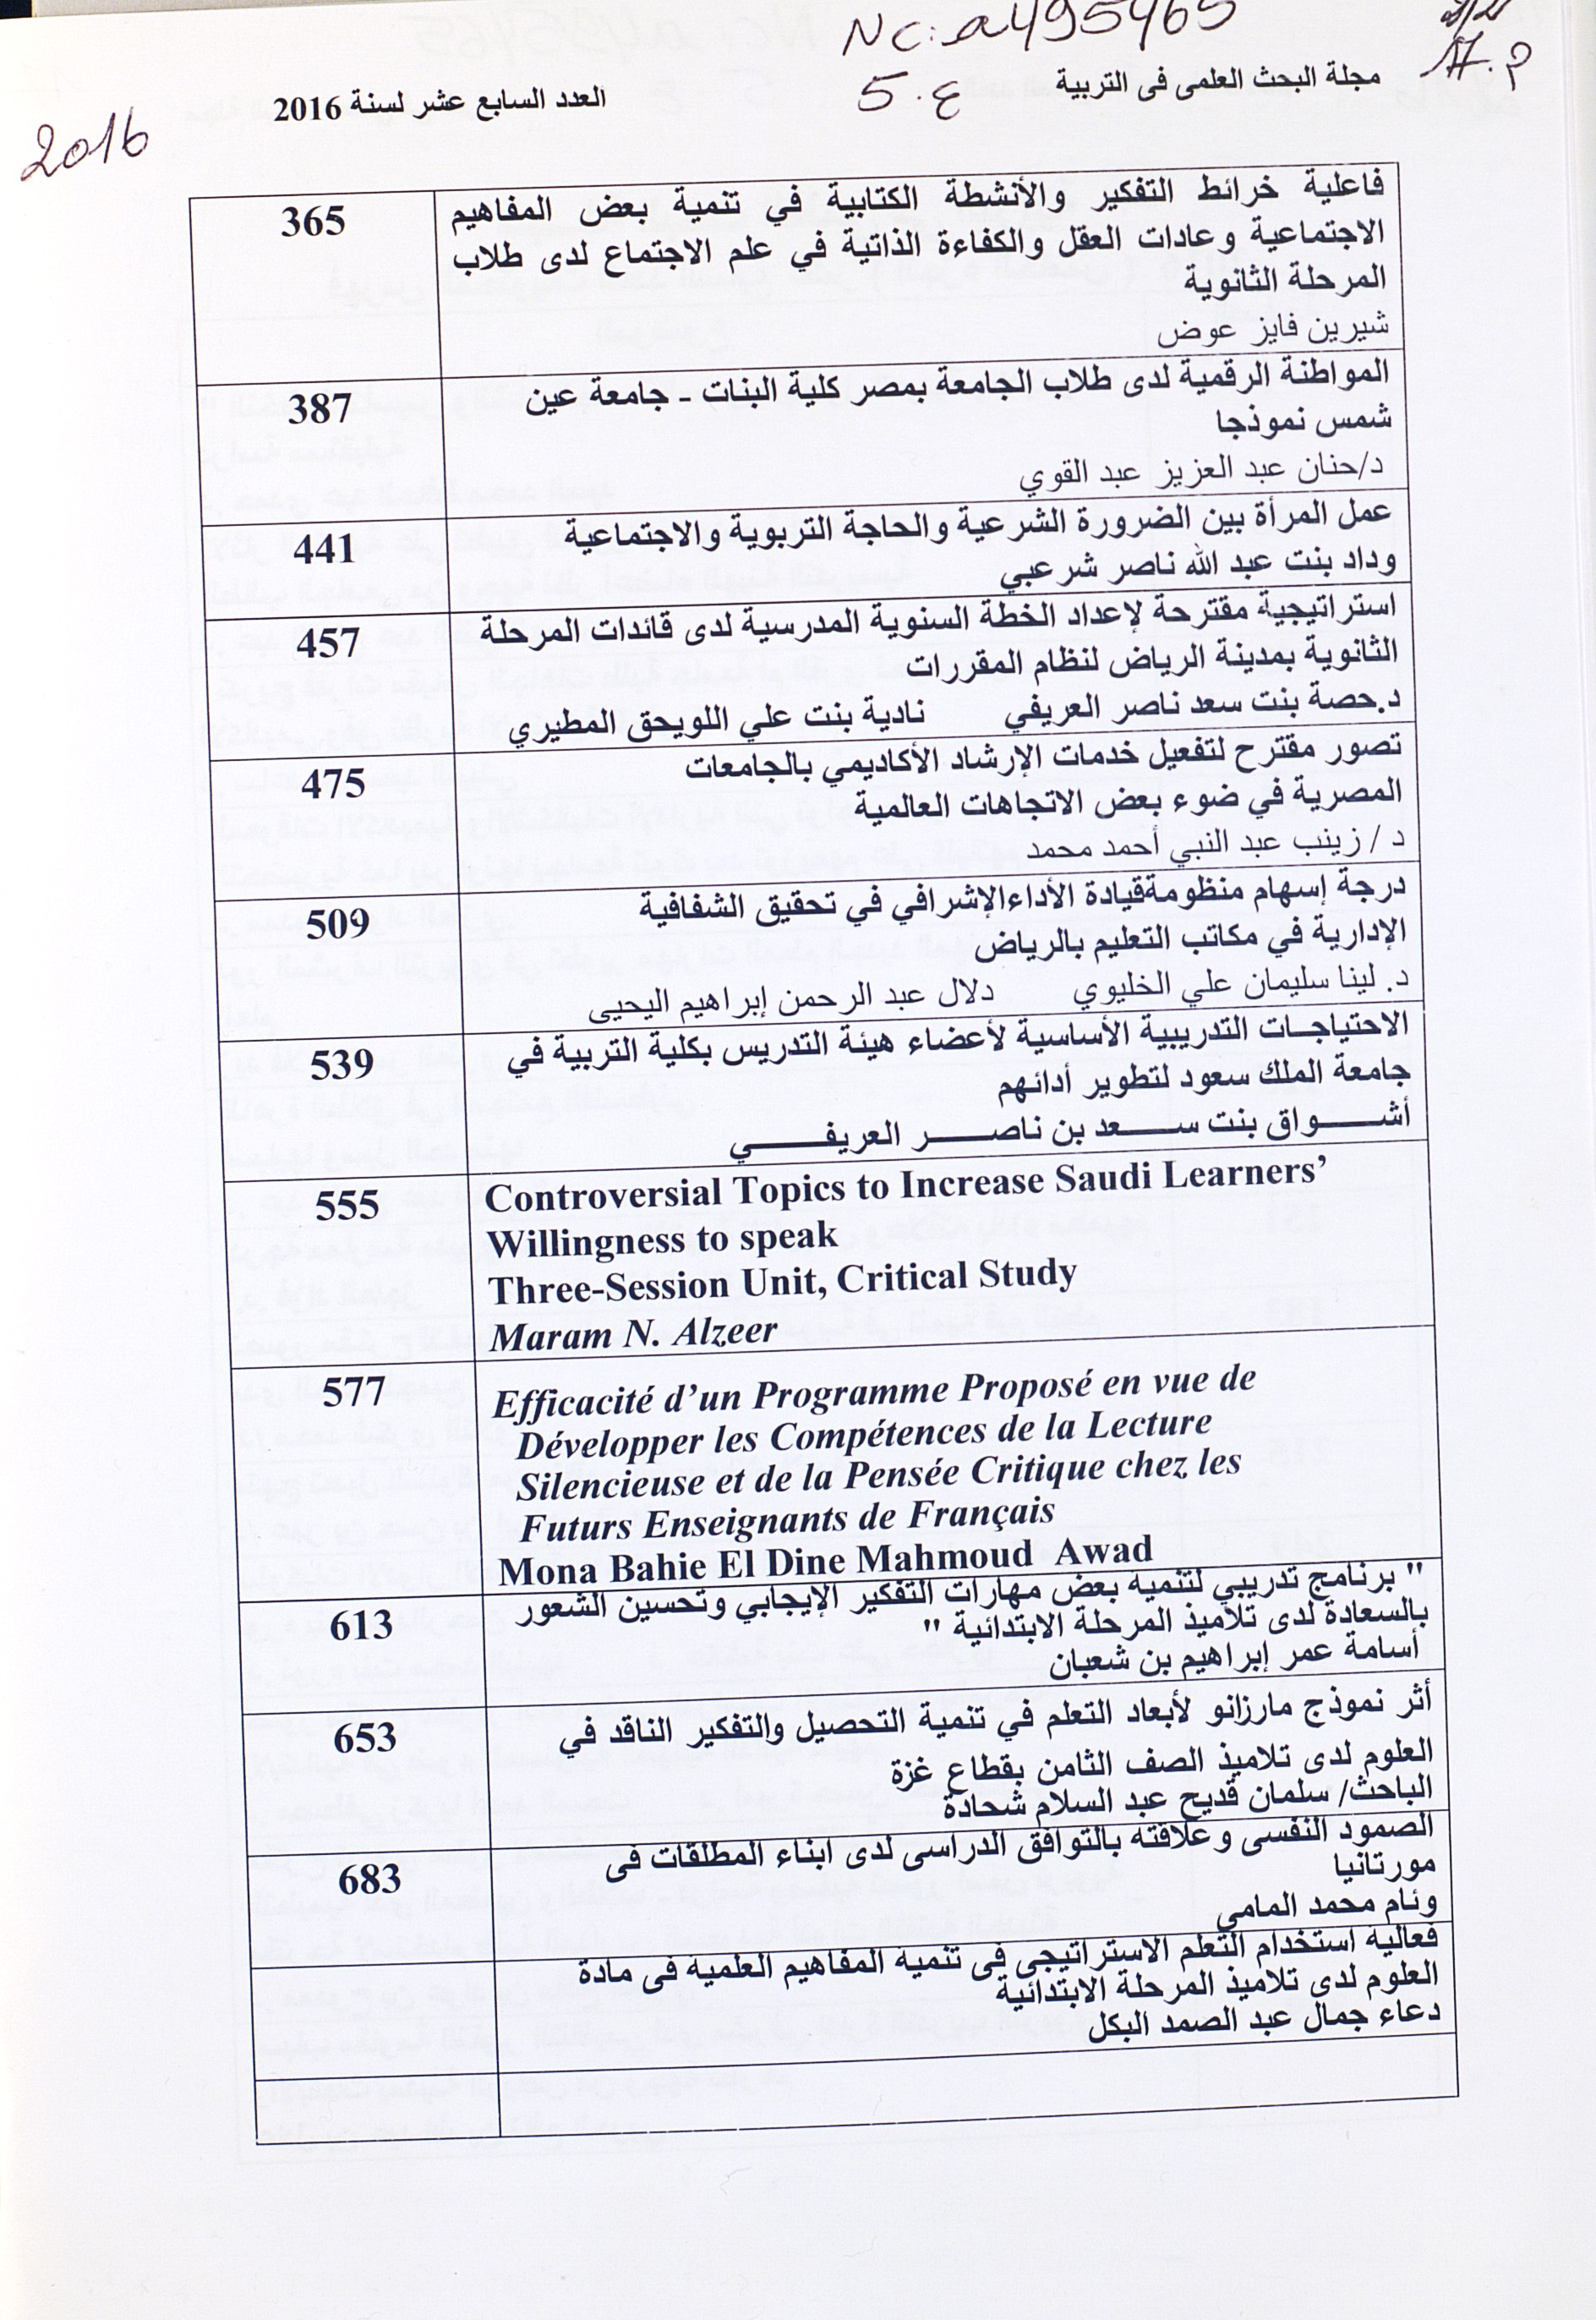 NC: a495465
م. 17
مجلة البحث العلمى فى التربية
ع. 5
العدد السابع عشر لسنة 2016
2016
فاعلية خرائط التفكير والأنشطة الكتابية في تنمية بعض المفاهيم
365
الاجتماعية وعادات العقل والكفاءة الذاتية في علم الاجتماع لدى طلاب
المرحلة الثانوية
شيرين فايز عوض
المواطنة الرقمية لدى طلاب الجامعة بمصر كلية البنات - جامعة عين
387
شمس نموذجا
د/حنان عبد العزيز عبد القوي
عمل المرأة بين الضرورة الشرعية والحاجة التربوية والاجتماعية
441
وداد بنت عبد الله ناصر شرعبي
استراتيجية مقترحة لإعداد الخطة السنوية المدرسية لدى قائدات المرحلة
457
الثانوية بمدينة الرياض لنظام المقررات
د.حصة بنت سعد ناصر العريفي نادية بنت علي اللويحق المطيري
تصور مقترح لتفعيل خدمات الإرشاد الأكاديمي بالجامعات
475
المصرية في ضوء بعض الاتجاهات العالمية
د / زينب عبد النبي أحمد محمد
درجة إسهام منظومةقيادة الأداءالإشرافي في تحقيق الشفافية
509
الإدارية في مكاتب التعليم بالرياض
د. لينا سليمان علي الخليوي دلال عبد الرحمن إبراهيم اليحيى
الاحتياجات التدريبية الأساسية لأعضاء هيئة التدريس بكلية التربية في
539
جامعة الملك سعود لتطوير أدائهم
أشـــــواق بنت ســـــعد بن ناصـــــر العريفـــــي
Controversial Topics to Increase Saudi Learners’
555
Willingness to speak
Three-Session Unit, Critical Study
Maram N. Alzeer
577
Efficacité d’un Programme Proposé en vue de
Développer les Compétences de la Lecture
Silencieuse et de la Pensée Critique chez les
Futurs Enseignants de Français
Mona Bahie El Dine Mahmoud Awad
" برنامج تدريبي لتنمية بعض مهارات التفكير الإيجابي وتحسين الشعور
613
بالسعادة لدى تلاميذ المرحلة الابتدائية "
أسامة عمر إبراهيم بن شعبان
أثر نموذج مارزانو لأبعاد التعلم في تنمية التحصيل والتفكير الناقد في
653
العلوم لدى تلاميذ الصف الثامن بقطاع غزة
الباحث/ سلمان قديح عبد السلام شحادة
الصمود النفسى وعلاقته بالتوافق الدراسى لدى ابناء المطلقات فى
683
مورتانيا
وئام محمد المامي
فعالية استخدام التعلم الاستراتيجى فى تنمية المفاهيم العلمية فى مادة
العلوم لدى تلاميذ المرحلة الابتدائية
دعاء جمال عبد الصمد البكل